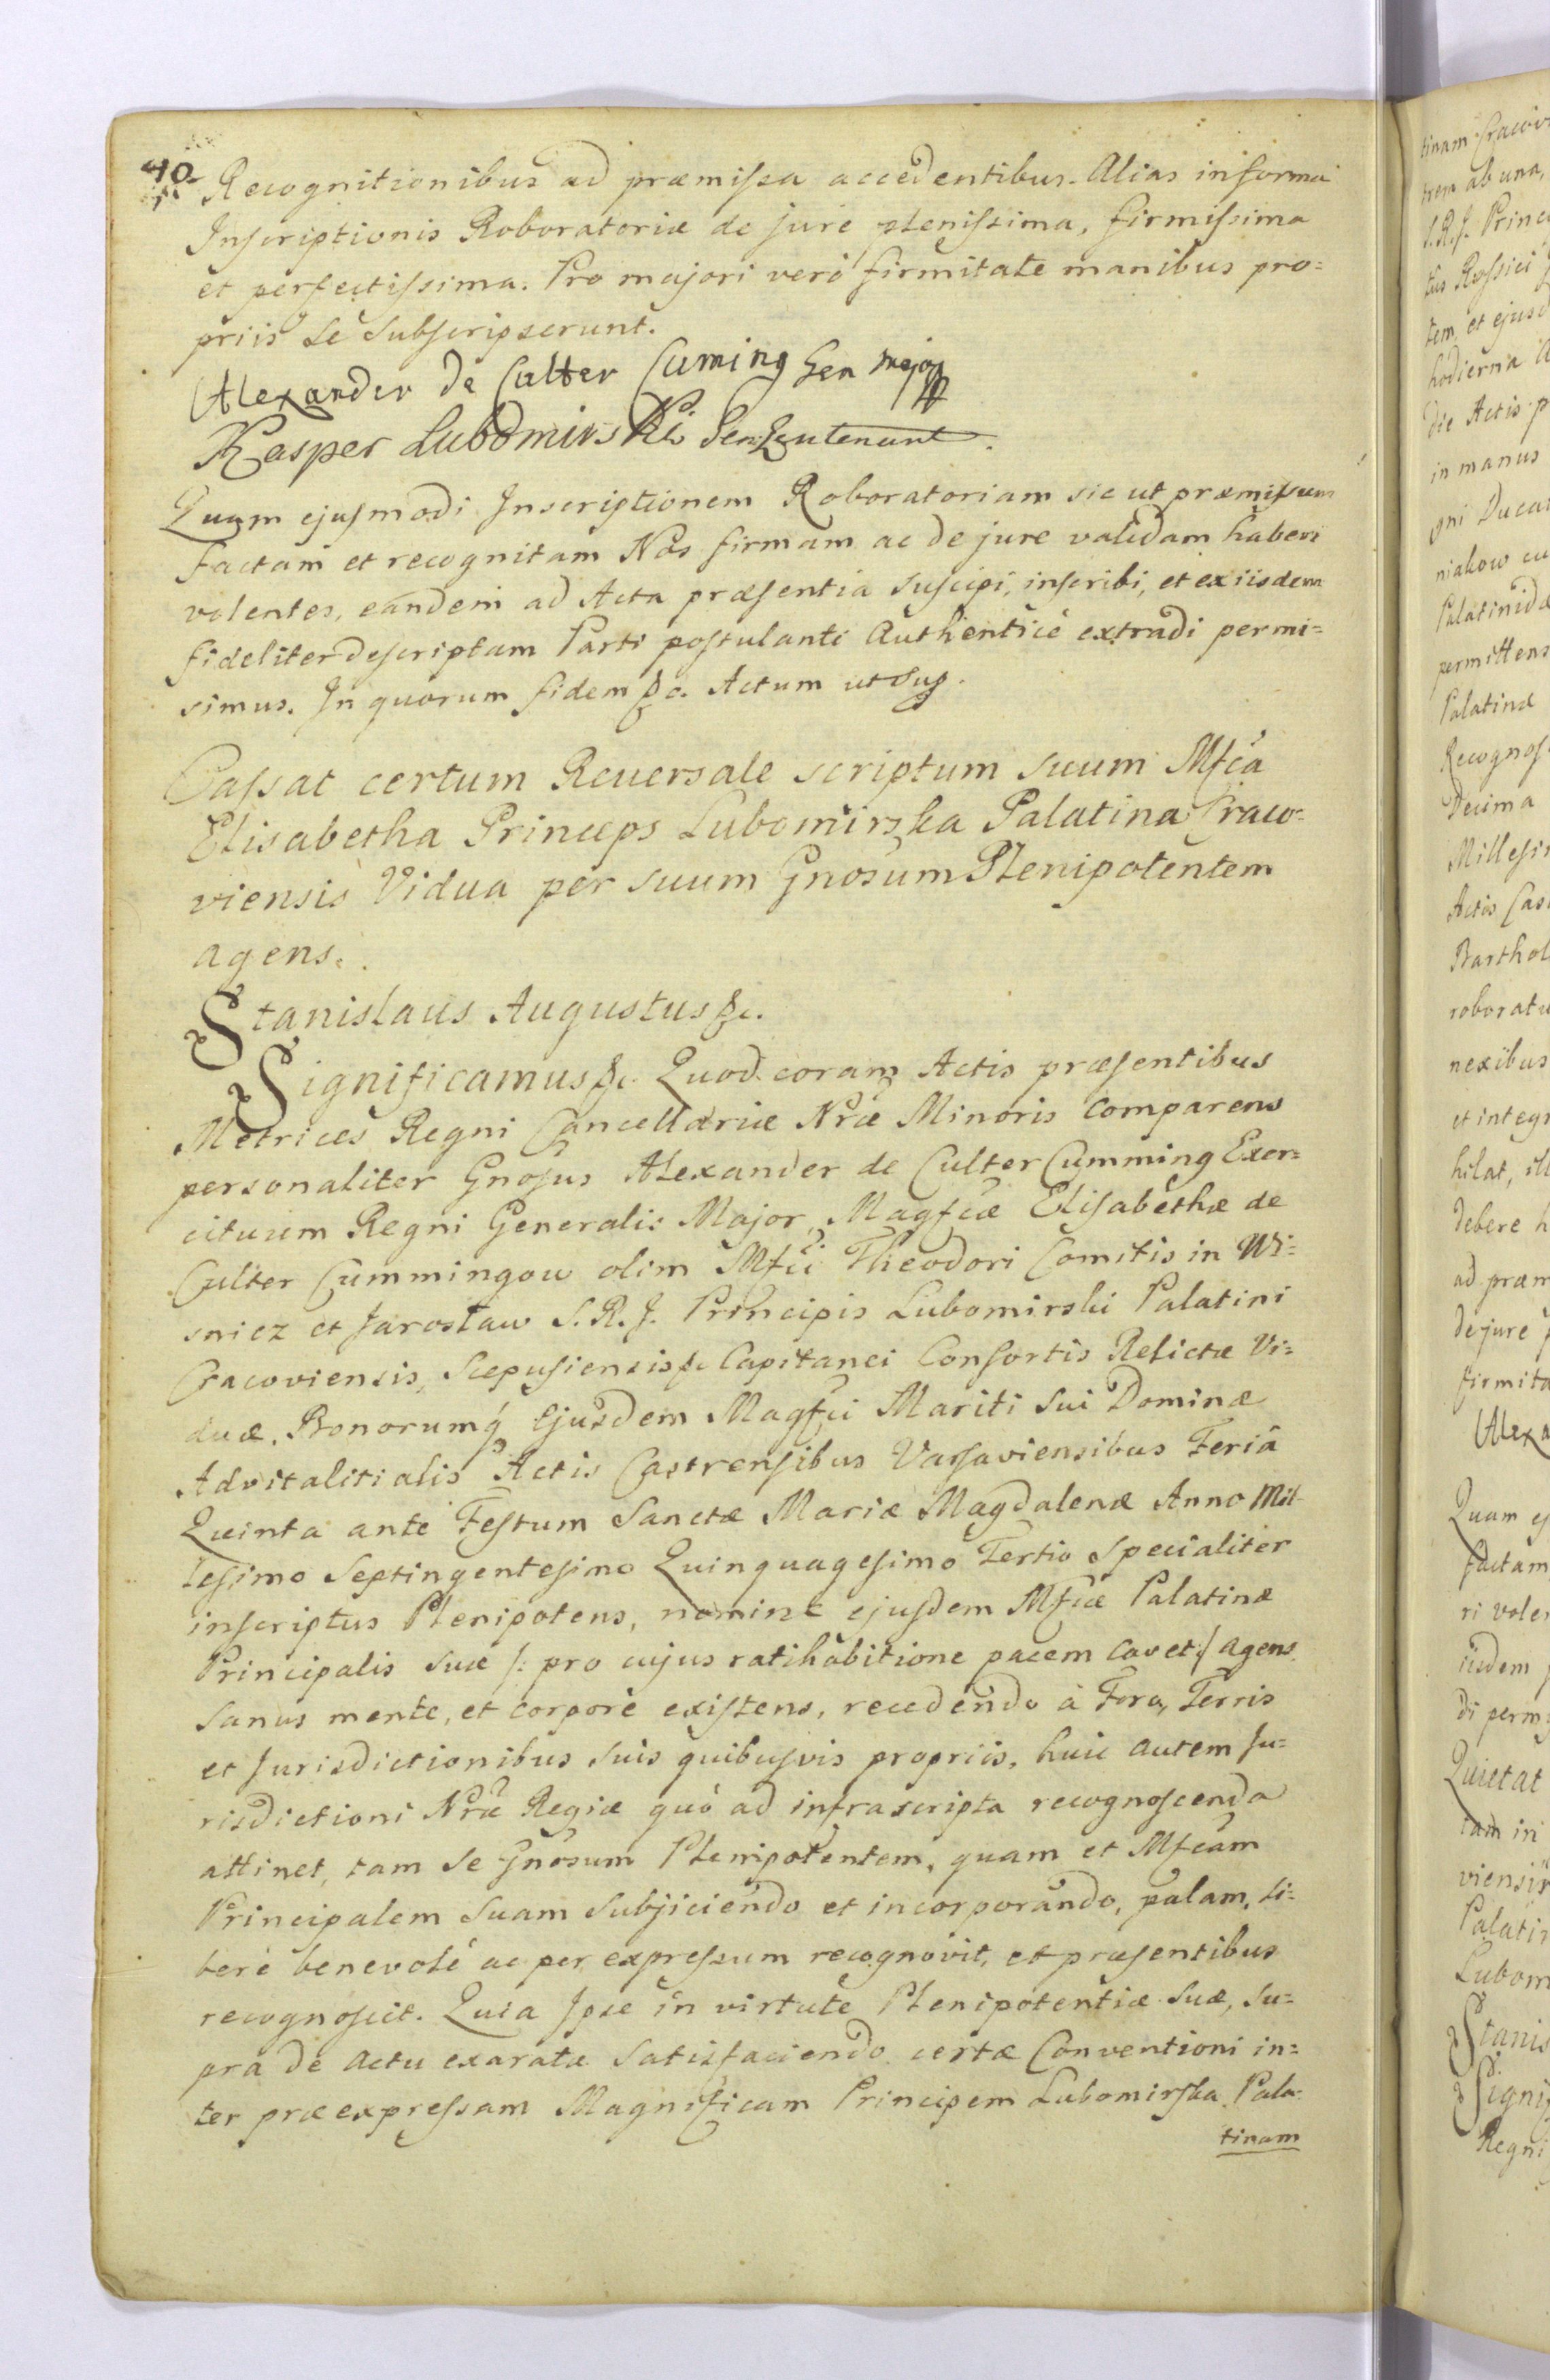 40.
Recognitionibus ad præmissa accedentibus. Alias in forma
Inscriptionis Roboratoriæ de jure plenissima, firmissima
et perfectissima. Pro majori verò firmitate manibus pro=
priis se subscripserunt.
Alexander de Culter Cuming Gen major
Kasper Lubomirski Gen Leutenant.
Quam ejusmodi Inscriptionem Roboratoriam sic ut præmissum
factam et recognitam Nos firmam ac de jure validam haberi
volentes, eandem ad Acta præsentia suscipi, inscribi, et ex iisdem
fideliter descriptam Parti postulanti Authenticè extradi permi=
simus. In quorum fidem &c. Actum ut sup.
Cassat certum Reversale scriptum suum Mfca
Elisabetha Princeps Lubomirska Palatina Craco=
viensis Vidua per suum Gnosum Plenipotentem
agens.
Stanislaus Augustus &c.
Significamus &c. Quod coram Actis præsentibus
Metrices Regni Cancellariæ Nræ Minoris comparens
personaliter Gnosus Alexander de Culter Cumming Exer=
cituum Regni Generalis Major, Magfcæ Elisabethæ de
Culter Cummingow olim Mfci Theodori Comitis in Wi=
snicz et Jarosław S. R. J. Principis Lubomirski Palatini
Cracoviensis, Scepusiensis &c Capitanei Consortis Relictæ Vi=
duæ, Bonorumq́ Ejusdem Magfci Mariti sui Dominæ
Advitalitialis Actis Castrensibus Varsaviensibus Feriâ
Quinta ante Festum Sanctæ Mariæ Magdalenæ Anno Mil=
lesimo Septingentesimo Quinquagesimo Tertio specialiter
inscriptus Plenipotens, nomine ejusdem Mfcæ Palatinæ
Principalis suæ /: pro cujus ratihabitione pacem cavet :/ agens
sanus mente, et corpore existens, recedendo à Foro, Terris
et Jurisdictionibus suis quibusvis propriis, huic autem Ju=
risdictioni Nræ Regiæ quò ad infrascripta recognoscenda
attinet, tam se Gnosum Plenipotentem, quam et Mfcam
Principalem suam subjiciendo et incorporando, palam, li=
berè benevolè ac per expressum recognovit, et præsentibus
recognoscit. Quia Ipse in virtute Plenipotentiæ suæ, su=
pra de actu exaratæ satisfaciendo certæ Conventioni in=
ter præexpressam Magnificam Principem Lubomirska Pala=
tinam